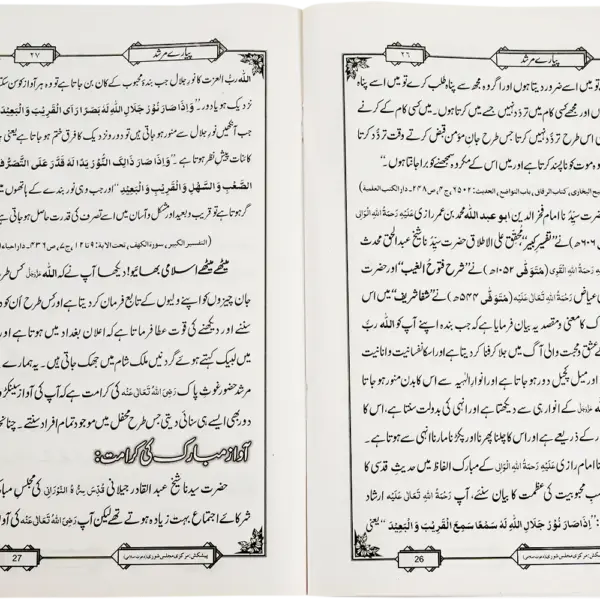 ۲۶
پیارے مرشد
تو میں اسے ضرور دیتا ہوں اور اگر وہ مجھ سے پناہ طلب کرے تو میں اسے پناہ
اور مجھے کسی کام میں تردّد نہیں جسے میں کرتا ہوں۔ میں کسی کام کے کرنے
اس طرح تردّد نہیں کرتا جس طرح جانِ مؤمن قبض کرتے وقت تردّد کرتا
وہ موت کو ناپسند کرتا ہے اور میں اس کے مکروہ سمجھنے کو برا جانتا ہوں۔"
البخاری، کتاب الرقاق، باب التواضع، الحدیث: ۶۵۰۲، ج۴، ص۲۴۸۔ دار الکتب العلمیة)
حضرت سیّدُنا امام فخر الدین ابو عبداللہ محمد بن عمر رازی عَلَیْہِ رَحْمَۃُ اللہِ الْوَالِی
۶۰۶ھ) نے "تفسیرِ کبیر" مُحقق علی الاطلاق حضرت سیّدُنا شیخ عبدالحق محدث
رَحْمَۃُ اللہِ الْقَوِی (مُتَوَفّٰی ۱۰۵۲ھ) نے "شرح فتوحُ الغیب" اور حضرت
عیاض رَحْمَۃُ اللہِ تَعَالٰی عَلَیْہ (مُتَوَفّٰی ۵۴۴ھ) نے "شفا شریف" میں اس
ک کا معنی و مقصد یہ بیان فرمایا ہے کہ جب بندہ اپنے آپ کو اللہ ربُّ
کے عشق و محبت والی آگ میں جلا کر فنا کر دیتا ہے اور اسکا نفسانیت و انانیت
اور میل کچیل دور ہو جاتا ہے اور انوارِ الٰہیہ سے اس کا بدن منور ہو جاتا
کے انوار ہی سے دیکھتا ہے اور انہی کی بدولت سنتا ہے، اس کا
کے ذریعے ہے اور اس کا چلنا پھرنا اور پکڑنا مارنا انہی سے ہوتا ہے۔
امام رازی عَلَیْہِ رَحْمَۃُ اللہِ الْوَالِی کے مبارک الفاظ میں حدیثِ قدسی کا
محبوبیت کی عظمت کا بیان سنئے، آپ رَحْمَۃُ اللہِ تَعَالٰی عَلَیْہ ارشاد
"اِذَا صَارَ نُوْرُ جَلَالِ اللہِ لَہٗ سَمْعًا سَمِعَ الْقَرِیْبَ وَالْبَعِیْدَ" یعنی
26
پیشکش: مرکزی مجلس شوریٰ (دعوتِ اسلامی)
پیارے مرشد
۲۷
اللہ ربُّ العزت کا نورِ جلال جب بندۂ محبوب کے کان بن جاتا ہے تو وہ ہر آواز کو سن سکتا
نزدیک ہو یا دور۔" وَاِذَا صَارَ نُوْرُ جَلَالِ اللہِ لَہٗ بَصَرًا رَاَی الْقَرِیْبَ وَالْبَعِیْدَ
جب آنکھیں نورِ جلال سے منور ہو جاتی ہیں تو دور و نزدیک کا فرق ختم ہو جاتا ہے یعنی
کائنات پیشِ نظر ہوتا ہے۔ "وَاِذَا صَارَ ذَالِکَ النُّوْرُ یَدًا لَہٗ قَدَرَ عَلَی التَّصَرُّفِ
الصَّعْبِ وَالسَّھْلِ وَالْقَرِیْبِ وَالْبَعِیْدِ" اور جب وہی نور بندے کے ہاتھوں میں
گر ہوتا ہے تو قریب و بعید اور مشکل و آسان میں اسے تصرف کی قدرت حاصل ہو جاتی ہے
(التفسیر الکبیر، سورۃ الکهف، تحت الایة: ۹ تا ۱۲، ج۷، ص۴۳۶۔ دار احیاء
میٹھے میٹھے اسلامی بھائیو! دیکھا آپ نے کہ اللہ کس طرح
جان چیزوں کو اپنے ولیوں کے تابع فرمان کر دیتا ہے اور کس طرح اُن کو دور
سننے اور دیکھنے کی قوت عطا فرماتا ہے کہ اعلان بغداد میں ہوتا ہے اور
میں لبیک کہتے ہوئے گردنیں ملکِ شام میں جھک جاتی ہیں۔ یہ ہمارے
مرشد حضور غوثِ پاک رَضِیَ اللہُ تَعَالٰی عَنْہُ کی کرامت ہے کہ آپ کی آواز سینکڑوں
دور بھی ایسے ہی سنائی دیتی جس طرح محفل میں موجود تمام افراد سنتے۔ چنانچہ
آواز مبارک کی کرامت:
حضرت سیدنا شیخ عبدالقادر جیلانی قُدِّسَ سِرُّہُ النُّوْرَانِی کی مجلسِ مبارک
شرکائے اجتماع بہت زیادہ ہوتے تھے لیکن آپ رَضِیَ اللہُ تَعَالٰی عَنْہُ کی آواز
پیشکش: مرکزی مجلس شوریٰ (دعوتِ اسلامی)
27